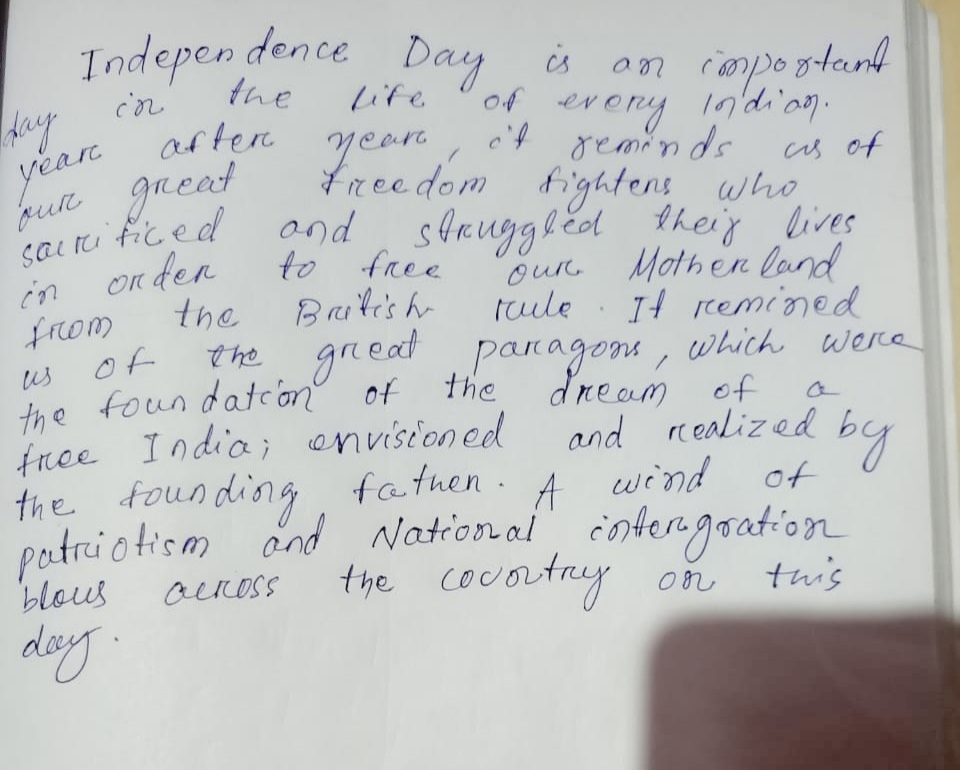 Independence Day is an important
day in the life of every Indian.
year after year, it reminds us of
our great freedom fighters who
sacrificed and struggled their lives
in order to free our Motherland
from the British rule. It remined
us of the great paragons, which were
the foundation of the dream of a
free India; envisioned and realized by
the founding father. A wind of
patriotism and National intergration
blows across the country on this
day.